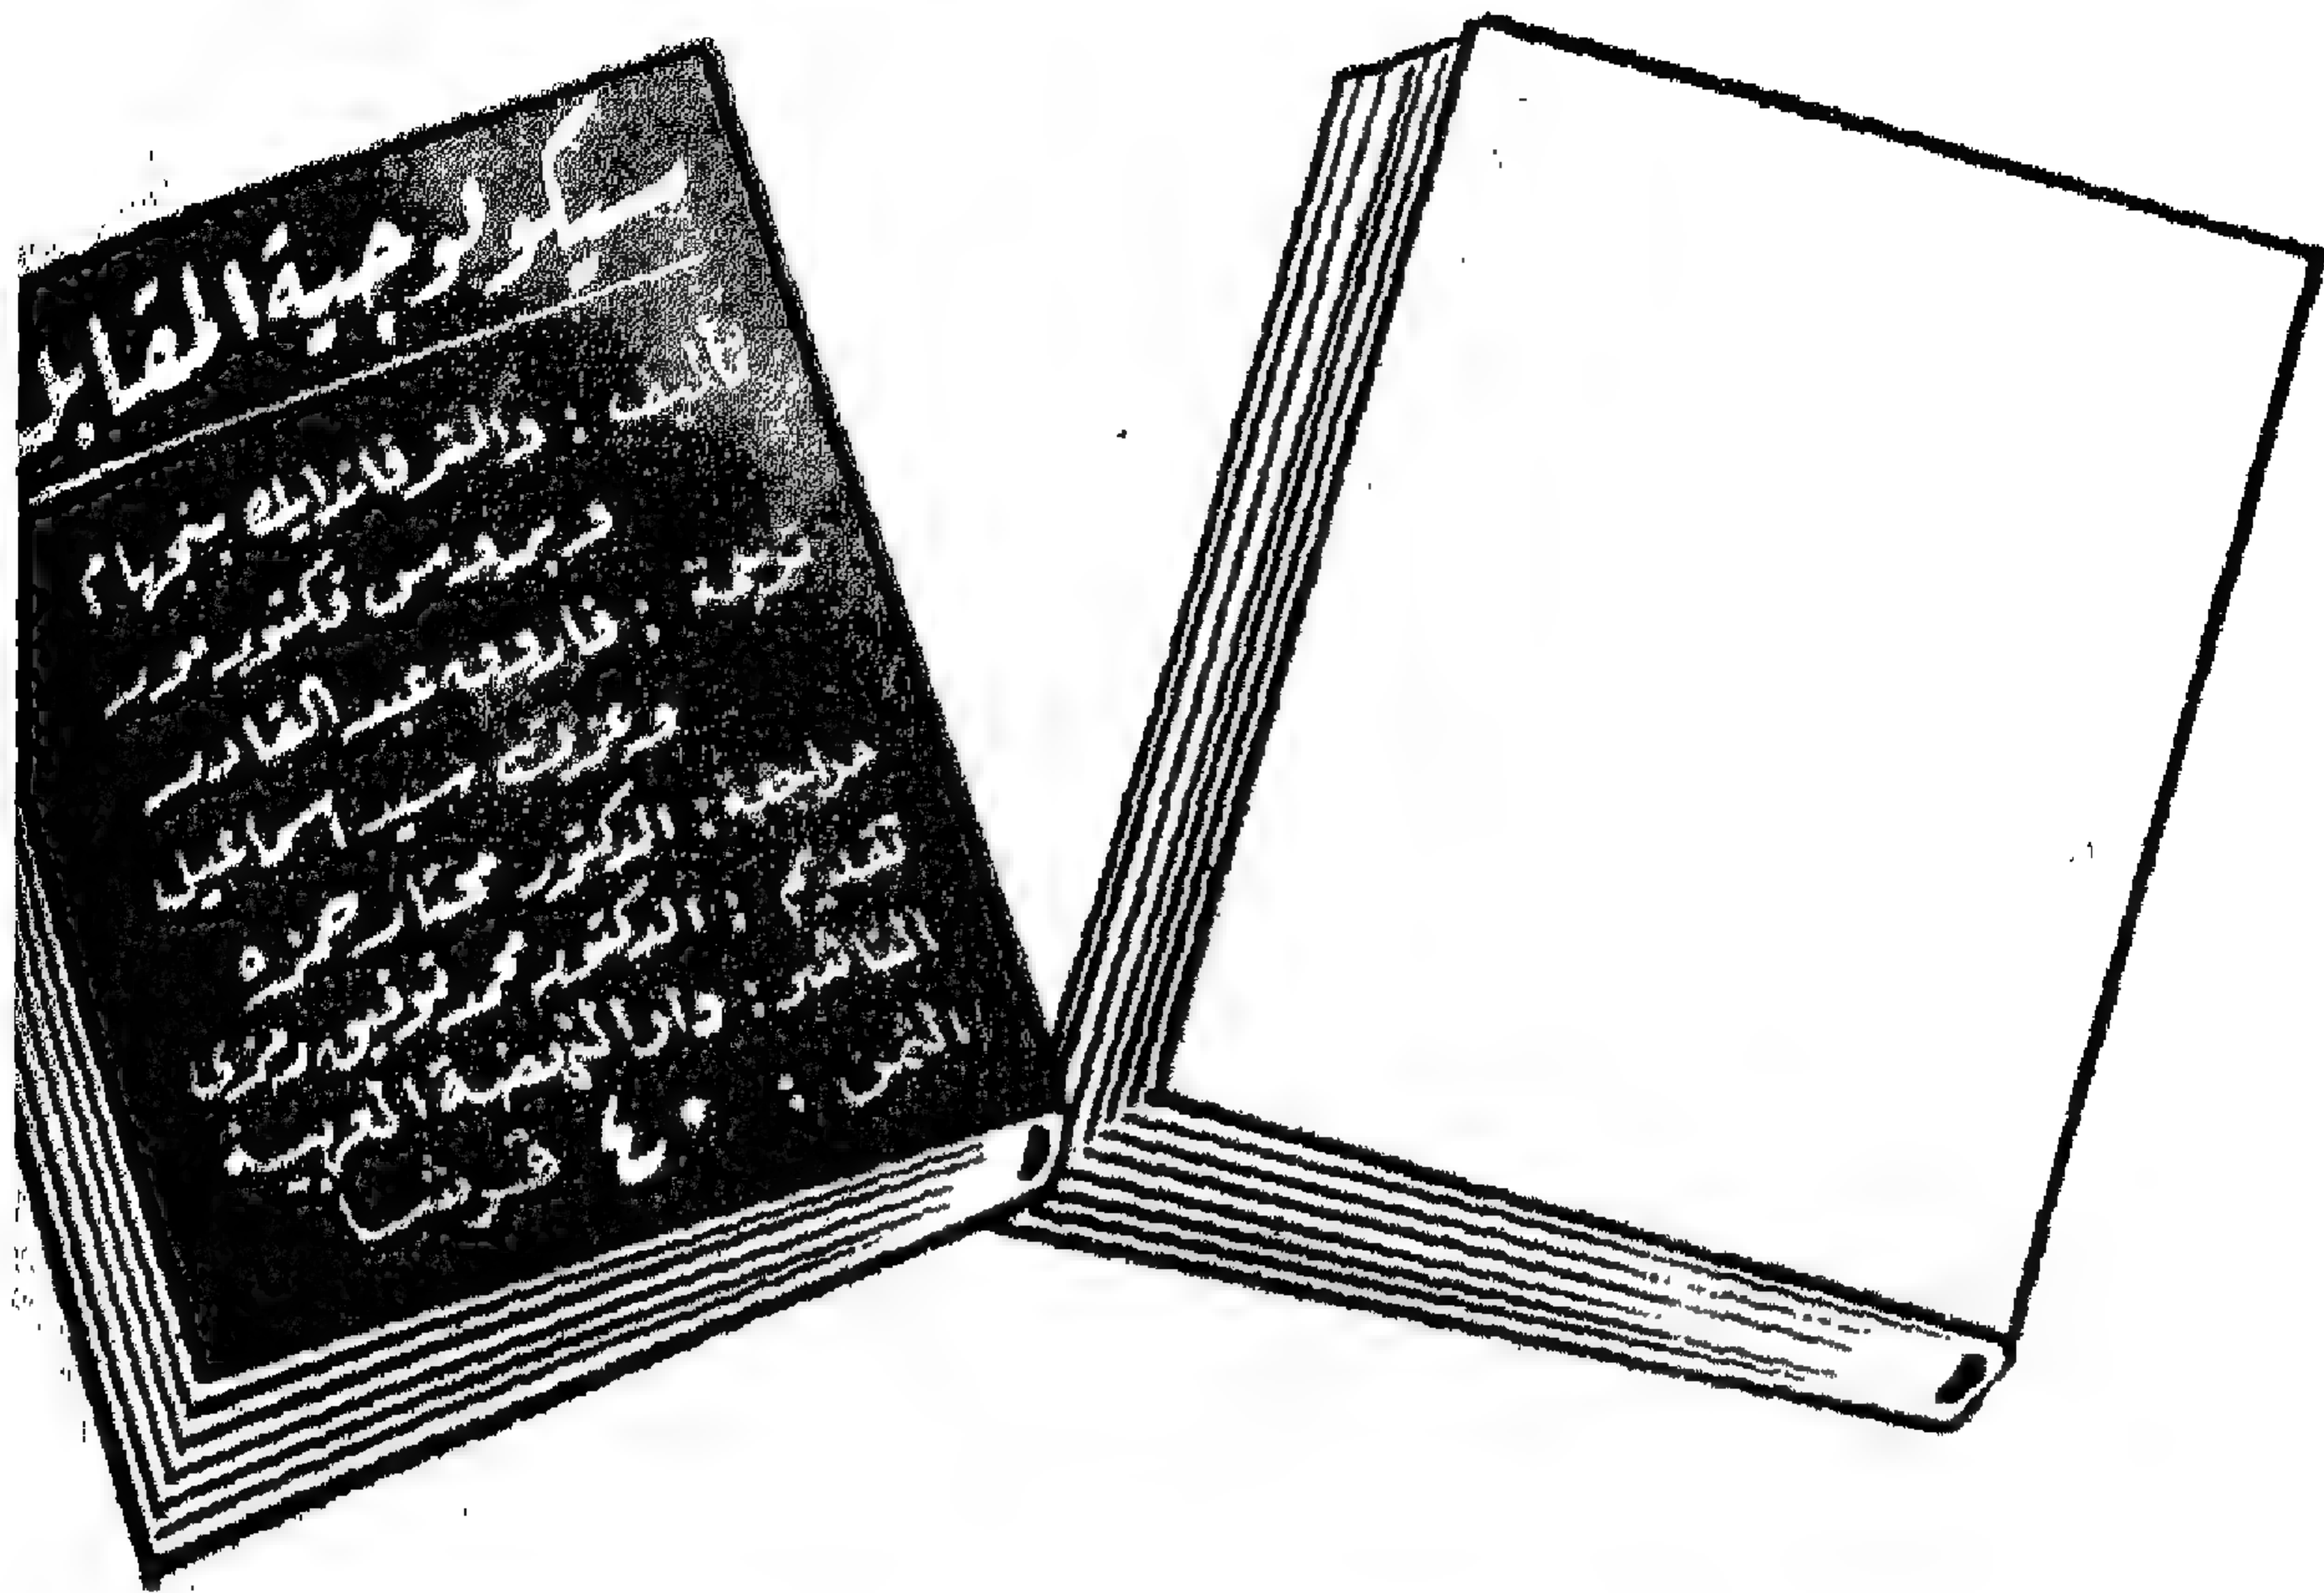 سيكولوجية القا
تأليف : والتر فاندايك بنجهام
و بروس فكتور مور
ترجمة : فاروق عبد القادر
وعزت سيد اسماعيل
مراجعة : الدكتور مختار حمزه
تقديم : الدكتور محمد توفيق رمزى
الناشر : دار النهضة العربية
الثمن : ٤٠ قرشا